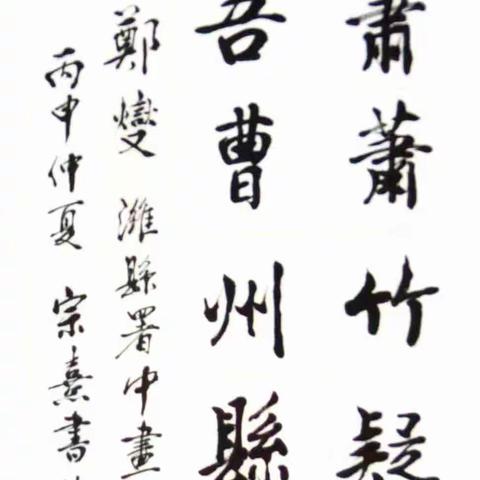 蕭蕭竹疑
吾曹州縣
鄭燮 濰縣署中畫
丙申仲夏 宗熹書